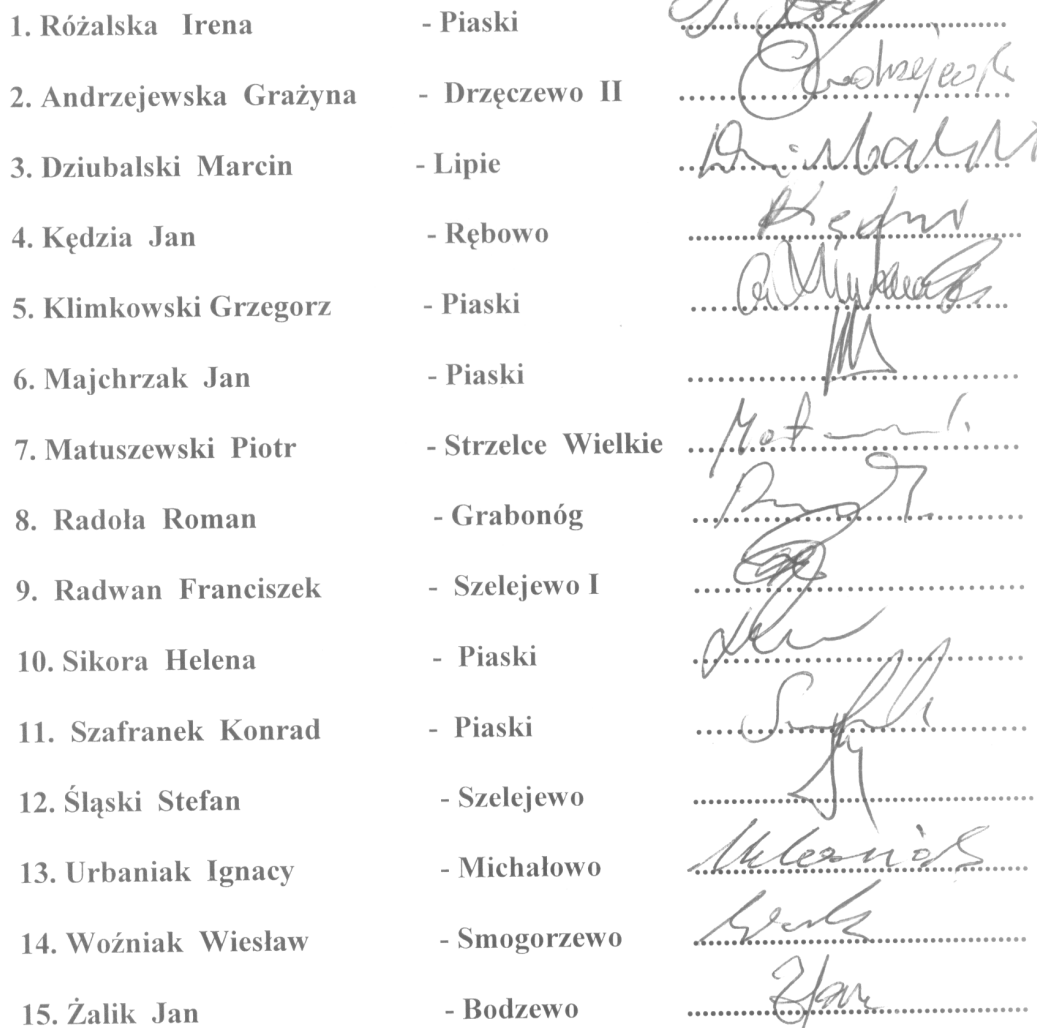 1. Różalska Irena - Piaski
2. Andrzejewska Grażyna - Drzęczewo II
3. Dziubalski Marcin - Lipie
4. Kędzia Jan - Rębowo
5. Klimkowski Grzegorz - Piaski
6. Majchrzak Jan - Piaski
7. Matuszewski Piotr - Strzelce Wielkie
8. Radoła Roman - Grabonóg
9. Radwan Franciszek - Szelejewo I
10. Sikora Helena - Piaski
11. Szafranek Konrad - Piaski
12. Śląski Stefan - Szelejewo
13. Urbaniak Ignacy - Michałowo
14. Woźniak Wiesław - Smogorzewo
15. Żalik Jan - Bodzewo